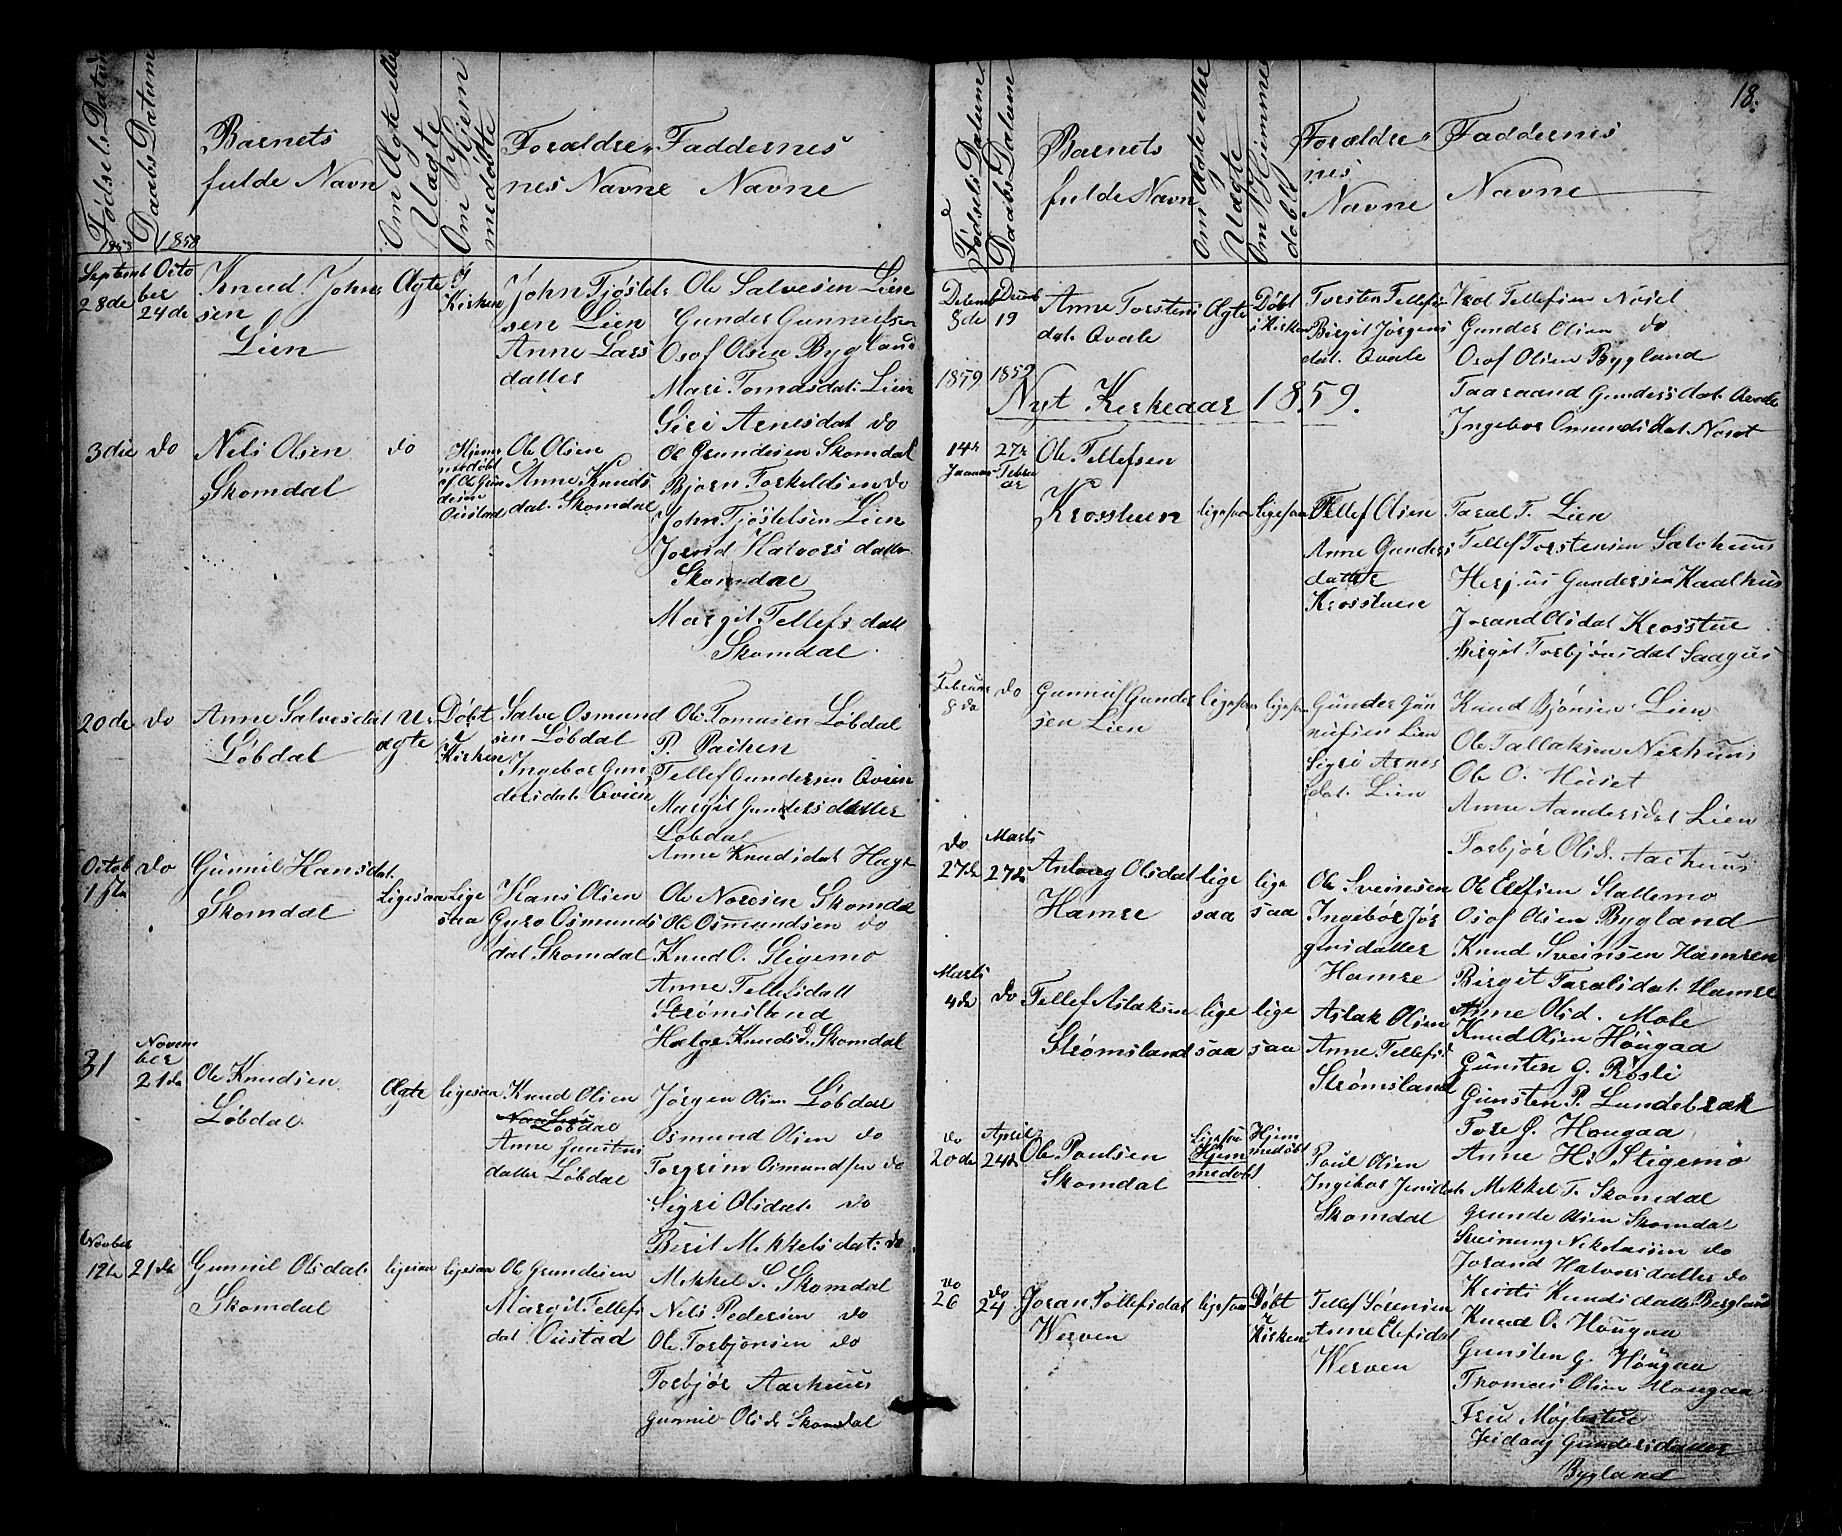 Fødsels Datum
1858
Daabs Datum
1858
Barnets
fulde Navn
Om Ægte eller
Uægte
Om Hjem
medøbte
Forældre-
nes Navne
Faddernes
Navne
Septemb
28de
Octo
ber
24de
Knud Johns
sen
Lien
Ægte
i
Kirken
John Tjøstels
sen Lien
Anne Lars
datter
Ole Salvesen Lien
Gunder Gunnufsen
Osof Olsen Bygland
Mari Tomasdat: Lien
Siri Arnesdat do
3die
do
Nels Olsen
Skomdal
do
Hjem
medøbt
af Ole Gun
desen
Oustad
Ole Olsen
Anne Knuds
dat. Skomdal
Ole Grundesen Skomdal
Bjorn Torkeldsen do
John Tjøstelsen Lien
Jorvid Halvors datter
Skomdal
Margit Tellefs datt
Skomdal
20de
do
Anne Salvesdat
Løbdal
U-
ægte
Døbt
i
Kirken
Salve Osmund
sen Løbdal
Ingebor Gun
dersdat. Qvien
Ole Tomasen Løbdal
P. Paiken
Tellef Gundersen Qvien
Margit Gundersdatter
Løbdal
Anne Knudsdat Hage
Octob
1ste
do
Gunnil Hansdat.
Skomdal
Ligesaa
Lige
saa
Hans Olsen
Guro Osmunds
dat. Skomdal
Ole Noresen Skomdal
Ole Osmundsen do
Knud O. Stigemo
Anne Tellefsdatt
Strømsland
Halge Knudsd. Skomdal
31
Novem
ber
21de
Ole Knudsen
Løbdal
Ægte
ligesaa
Knud Olsen
Løbdal
Anne Gunstens
datter Løbdal
Jørgen Olsen Løbdal
Osmund Olsen do
Torgrim Osmundsen do
Sigri Olsdat. do
Berit Mikkelsdat: do
Novber
12te
21de
Gunnil Olsdat.
Skomdal
ligesaa
ligesaa
Ole Grundesen
Margit Tellefs
dat. Oustad
Mikkel S. Skomdal
Nels Pedersen do
Ole Torbjørnsen do
Torbjør Aarhuus
Gunnil Olsdr Skomdal
18.
Fødsels Datum
Daabs Datum
Barnets
fulde Navn
Om Ægte eller
Uægte
Om Hjemme
døbt
Forældre-
nes
Navne
Faddernes
Navne
Decemb
8de
Decmb
19
Anne Torstens
dat. Qvale
Ægte
Døbt
i Kirken
Torsten Tellefsen
Birgit Jørgens
dat. Qvale
Tellefsen Noset
Gunder Olsen do
Osof Olsen Bygland
Taaraand Gundersdat. Qvale
Ingebor Omundsdat Noset
1859
1859
Nyt Kirkeaar 1859.
14de
Januar
27de
Febru
ar
Ole Tellefsen
Krosstuen
ligesaa
ligesaa
Tellef Olsen
Anne Gunders
datter
Krosstuen
Taral T. Lien
Tellef Torstensen Salthuus
Herjus Gundersen Kaalhus
Jorand Olsdat Krosstue
Birgit Torbjønsdat Saagnes
Februar
8de
do
Gunnuf Gunder
sen Lien
ligesaa
ligesaa
Gunder Gun
nufsen Lien
Sigri Arnes
dat. Lien
Knud Bjørnsen Lien
Ole Tallaksen Nerhuus
Ole O. Huset
Anne Aandersdat Lien
Torbjør Olsd. Aarhuus
do
27de
Marts
27de
Aslaug Olsdat
Hamre
lige
saa
lige
saa
Ole Sveinsen
Ingebor Jør
gensdatter
Hamre
Ole Elefsen Stallemo
Osof Olsen Bygland
Knud Sveinsen Hamren
Birgit Taralsdat. Hamre
Anne Olsd. Mole
Marts
4de
do
Tellef Aslaksen
Strømsland
lige
saa
lige
saa
Aslak Olsen
Anne Tellefs
Strømsland
Knud Olsen Hougaa
Gunsten G. Røsli
Gunsten P. Lundebrek
Tore G. Hougaa
Anne H. Stigemo
do
20de
April
24de
Ole Paulsen
Skomdal
Ligesaa
Hjem
medøbt
Hjem
medøbt
Paul Olsen
Ingebor Jensdat.
Skomdal
Mekkel T. Skomdal
Grunde Olsen Skomdal
Sveinung Nikolaisen do
Jorand Halvorsdatter do
Kristi Knudsdatter Bergland
do
26
do
24
Joran Tellefsdat
Werven
ligesaa
Døbt
i
Kirken
Tellef Sørensen
Anne Elefsdat
Werven
Knud O. Hougaa
Gunsten G. Hougaa
Thomas Olsen Hougaa
Fru Møglestue
Gundersdatter
Bygland